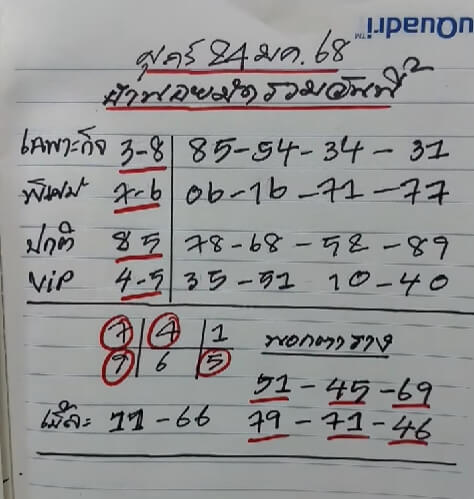 uQuadri™
ศุกร์ 24 มค. 68
ฮานอยมัดรวมวันที่
เฉพาะกิจ 3-8 85-54-34-31
พิเศษ 7-6 06-16-71-77
ปกติ 85 78-68-58-89
VIP 4-5 35-51 10-40
7 4 1 พอกตาราง
9 6 5
51-45-69
เบิ้ล 11-66 79-71-46